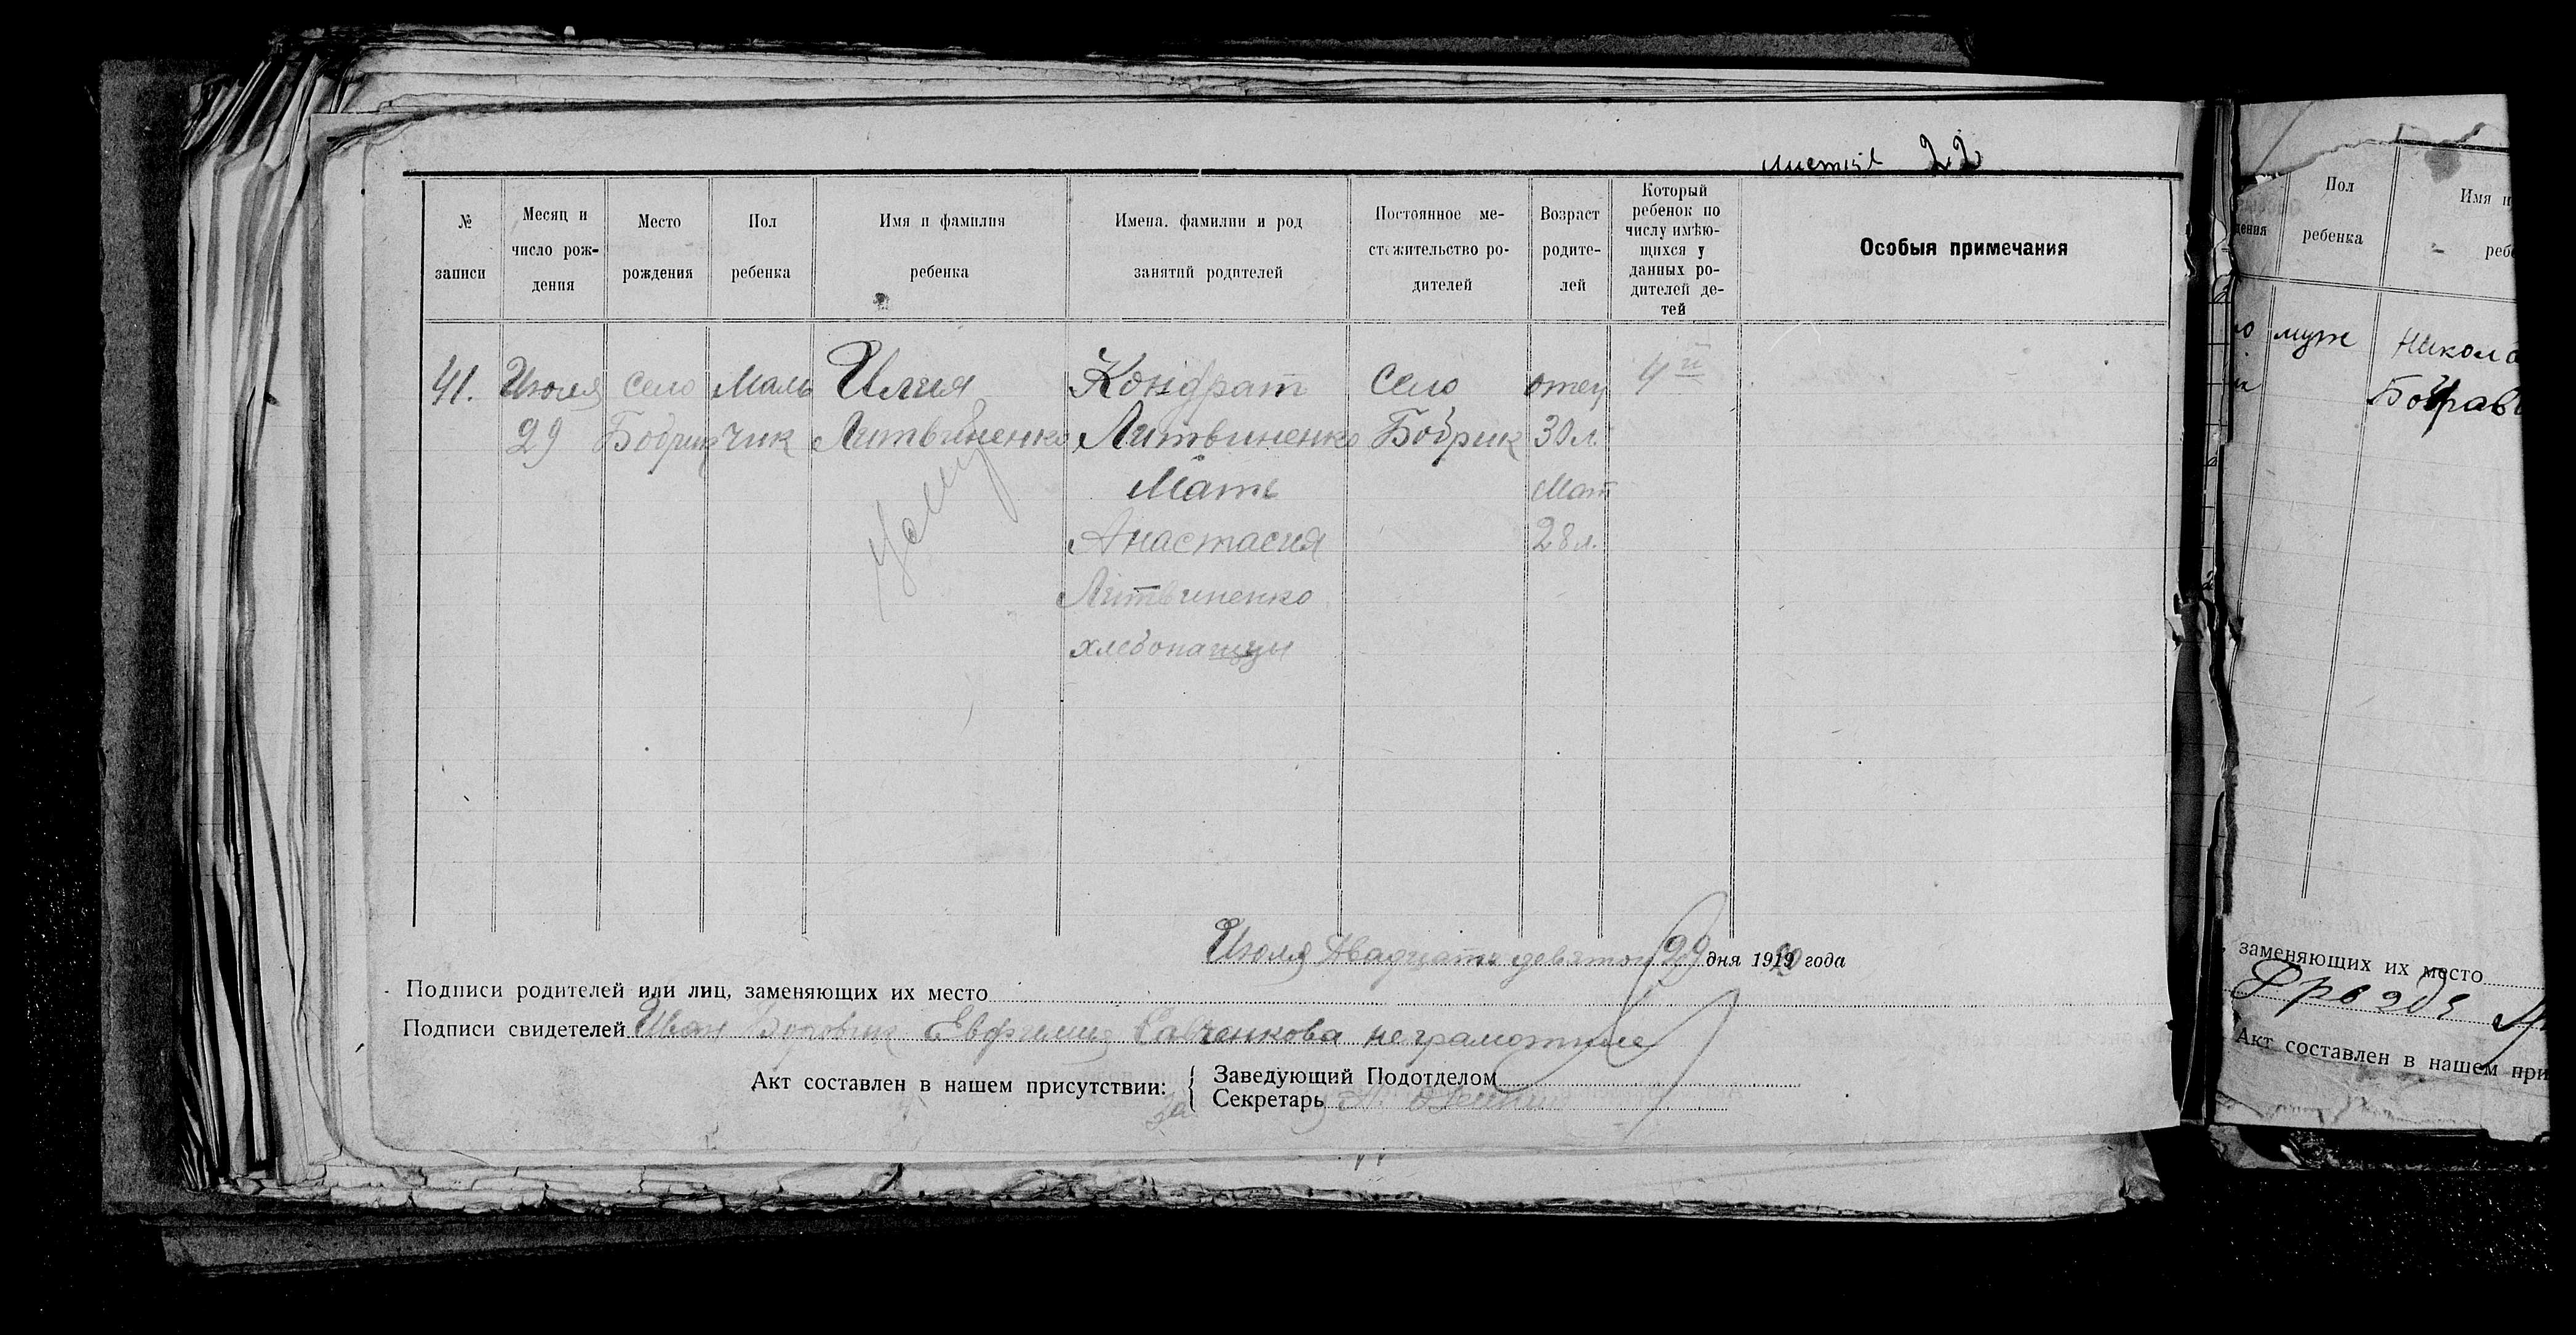 листів 22
№ записи
Месяц и число рождения
Место рождения
Пол ребенка
Имя и фамилия ребенка
Имена, фамилии и род занятий родителей
Постоянное местожительство родителей
Возраст родителей
Который ребенок по числу имѣющихся у данных родителей детей
Особыя примечания
41. Июля Село Маль Илия Кондрат Село отец 4й
29 Бобрик чик Литвиненко Литвиненко Бобрик 30 л.
Мать Мат
Анастасия 28 л.
Литвиненко
хлебопашцы
Июля двадцать девятого 29 дня 1919 года
Подписи родителей или лиц, заменяющих их место
Подписи свидетелей Иван Евфимия Савченкова неграмотные
Акт составлен в нашем присутствии:
Заведующий Подотделом
За Секретарь
Пол ребенка
Имя и
реб
дения
муж
Никола
заменяющих их место
Акт составлен в нашем при